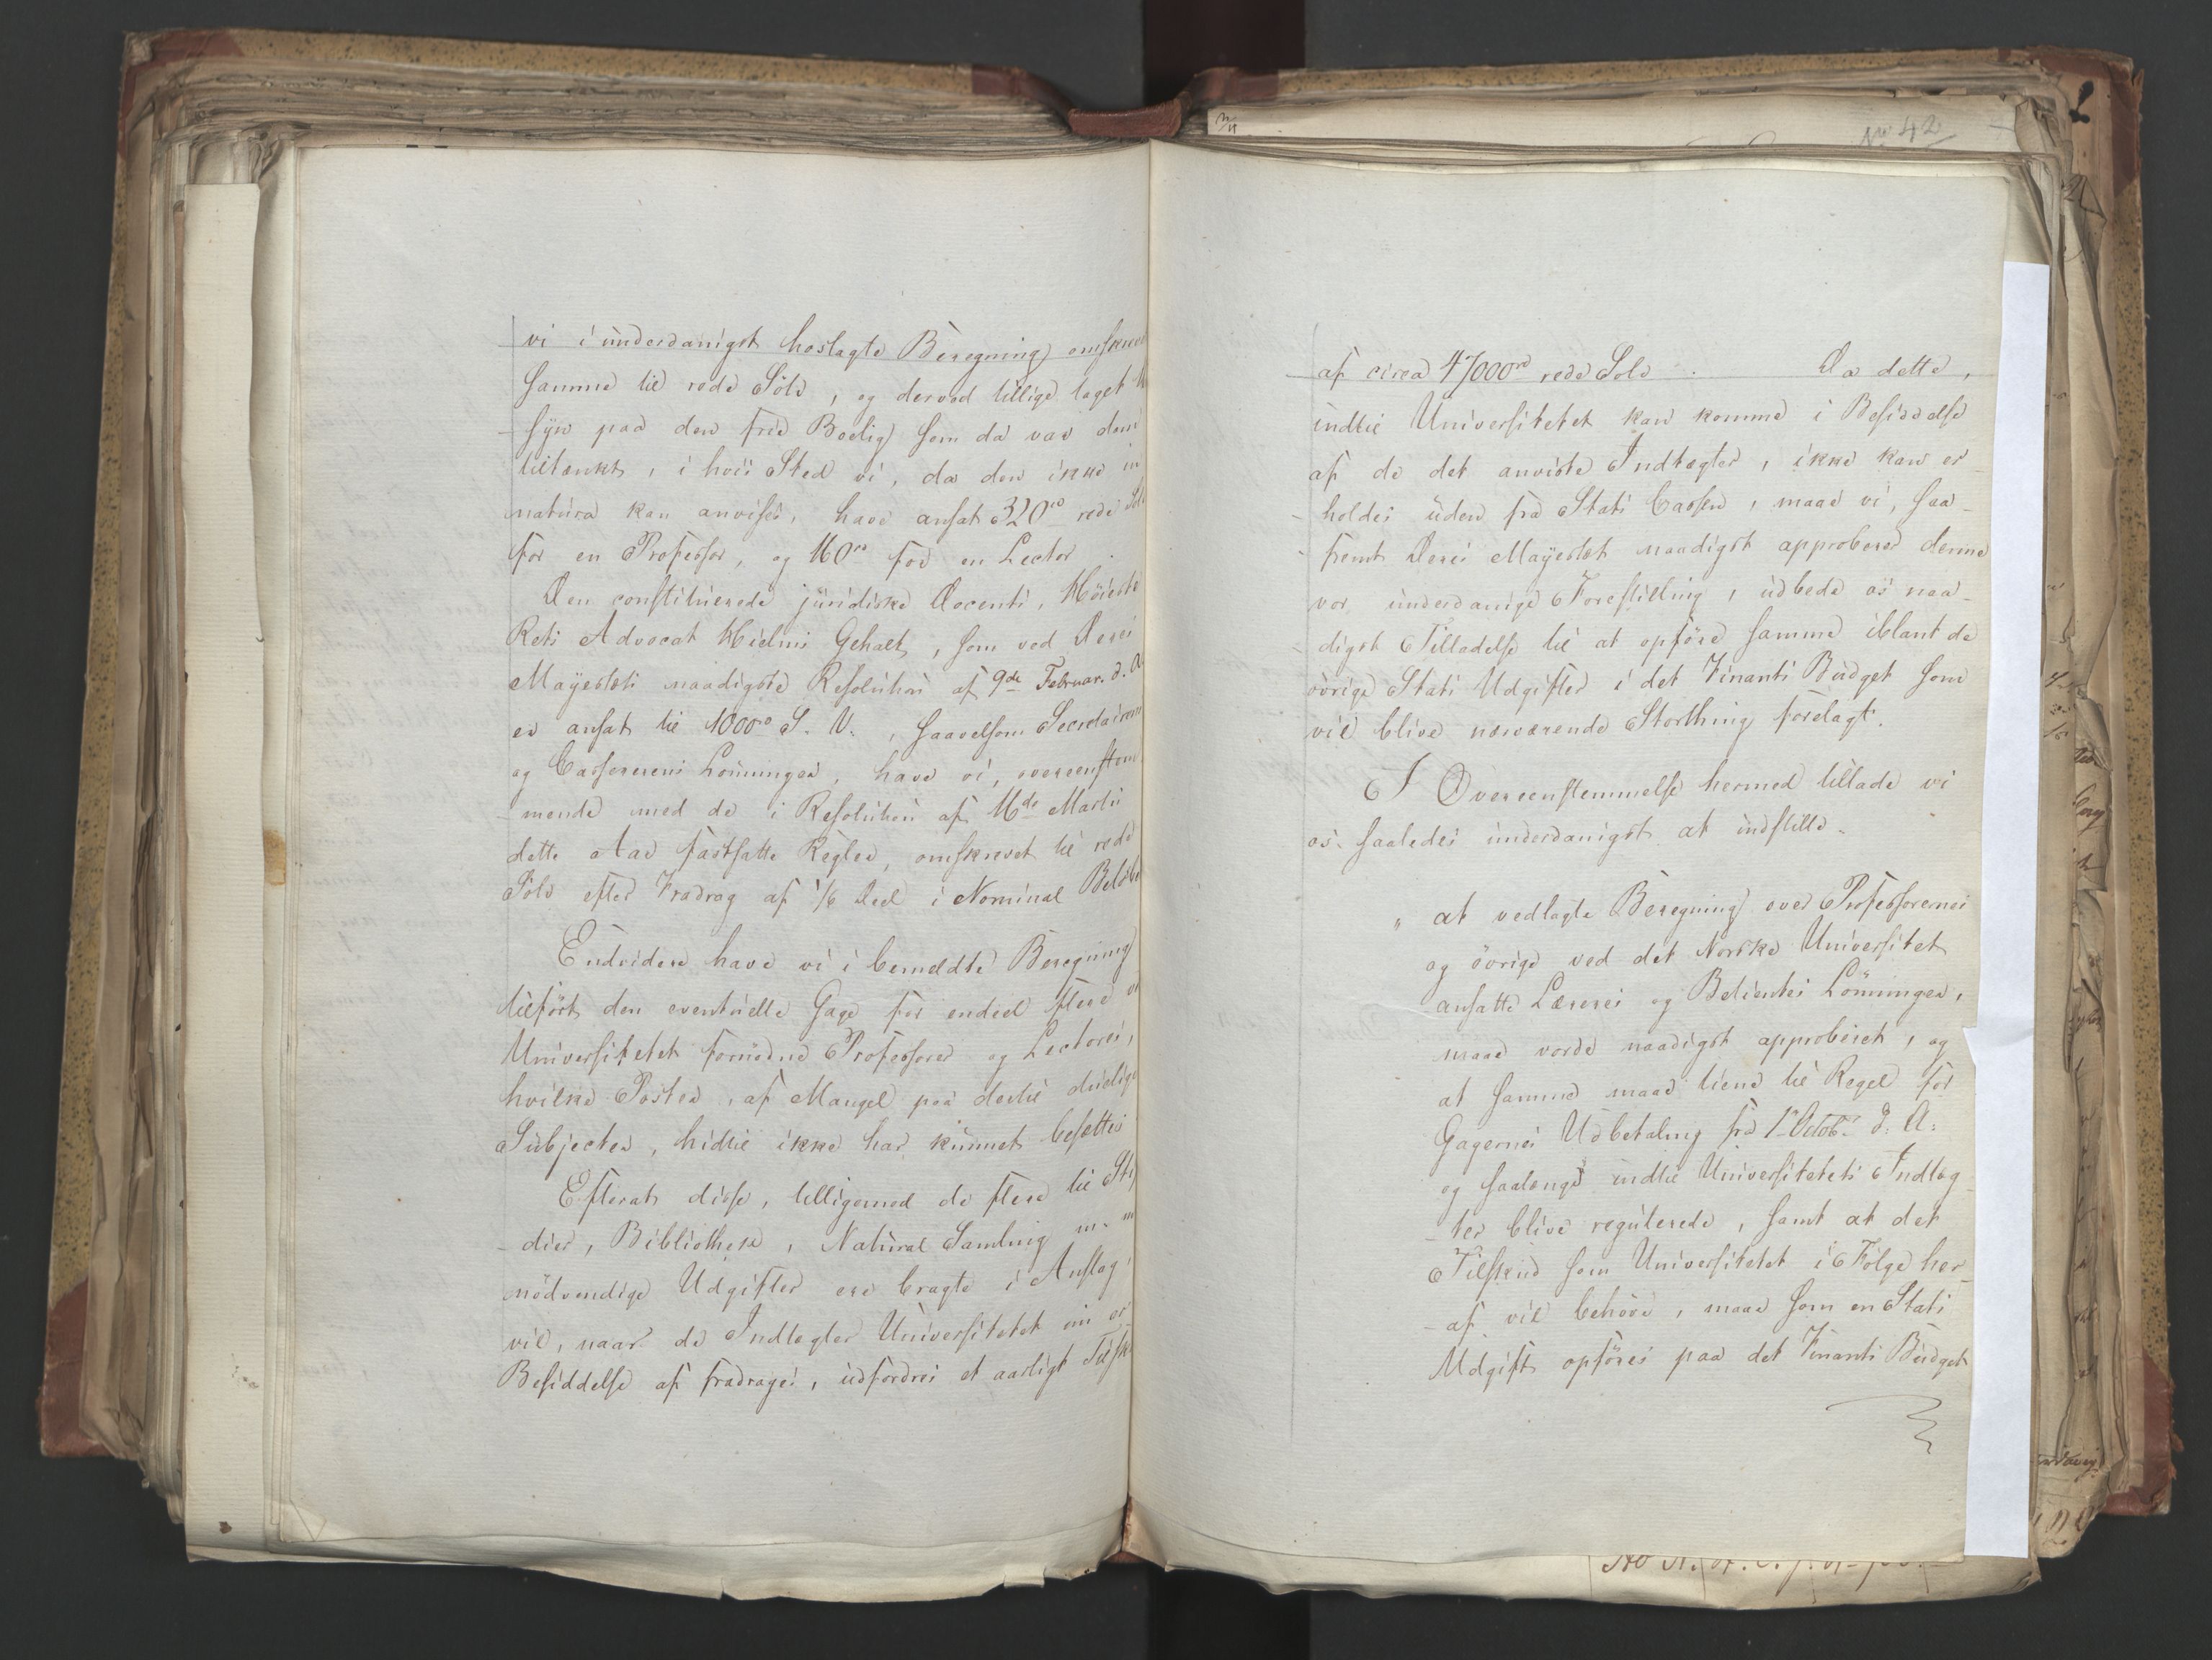 vi i underdanigst hoslagte Beregning omskrevet
samme til rede Sölv, og derved tillige taget
syn paa den frie Boelig som da var dem
tiltænkt, i hvis Sted vi, da den ikke in
natura kan anvises, have ansat 320rd rede Söl
for en Professor, og 160rd for en Lector.
Den constituerede juridiske Docents, Höieste
Rets Advocat Hielms Gehalt, som ved Deres
Mayestæts naadigste Resolution af 9de Februar. d. A.
er ansat til 1000rd S. V., saavelsom Secretairens
og Cassererens Lönninger, have vi, overeenstem
mende med de i Resolution af 16de Martii
dette Aar fastsatte Regler, omskrevet til rede
Sölv efter Fradrag af 1/6 Deel i Nominal Belöbe
Endvidere have vi i bemeldte Beregning
tilfört den eventuelle Gage for endeel flere
Universitetet fornödne Professorer og Lectorer,
hvilke Poster, af Mangel paa dertil duelige
Subjecter, hidtil ikke har kunnet besættes
Efterat disse, tilligemed de flere til Sti
dier, Bibliothek, Natural Samling m. m
nödvendige Udgifter ere bragte i Anslag,
vil, naar de Indtægter Universitetet nu er
Besiddelse af fradrages, udfordres et aarligt Tilsk
No 42
af circa 47000rd rede Sölv. Da dette,
indtil Universitetet kan komme i Besiddelse
af de det anviste Indtægter, ikke kan er
holdes uden fra Stats Cassen, maae vi, saa
fremt Deres Mayestæt naadigst approberer denne
vor underdanige Forestilling, udbede os naa
digst Tilladelse til at opföre samme iblant de
övrige Stats Udgifter i det Finants Budget som
vil blive nærværende Storthing forelagt.
I Overeenstemmelse hermed tillade vi
os saaledes underdanigst at indstille.
" at vedlagte Beregning over Professorernes
og övrige ved det Norske Universitet
ansatte Læreres og Betientes Lönninger,
maae vorde naadigst approberet, og
at samme maae tiene til Regel for
Gagernes Udbetaling fra 1ste Octobr d: A:
og saalænge indtil Universitetets Indtæg
ter blive regulerede, samt at det
Tilskud som Universitetet i Fölge her
af vil behöve, maae som en Stats
Udgift opföres paa det Finants Budget